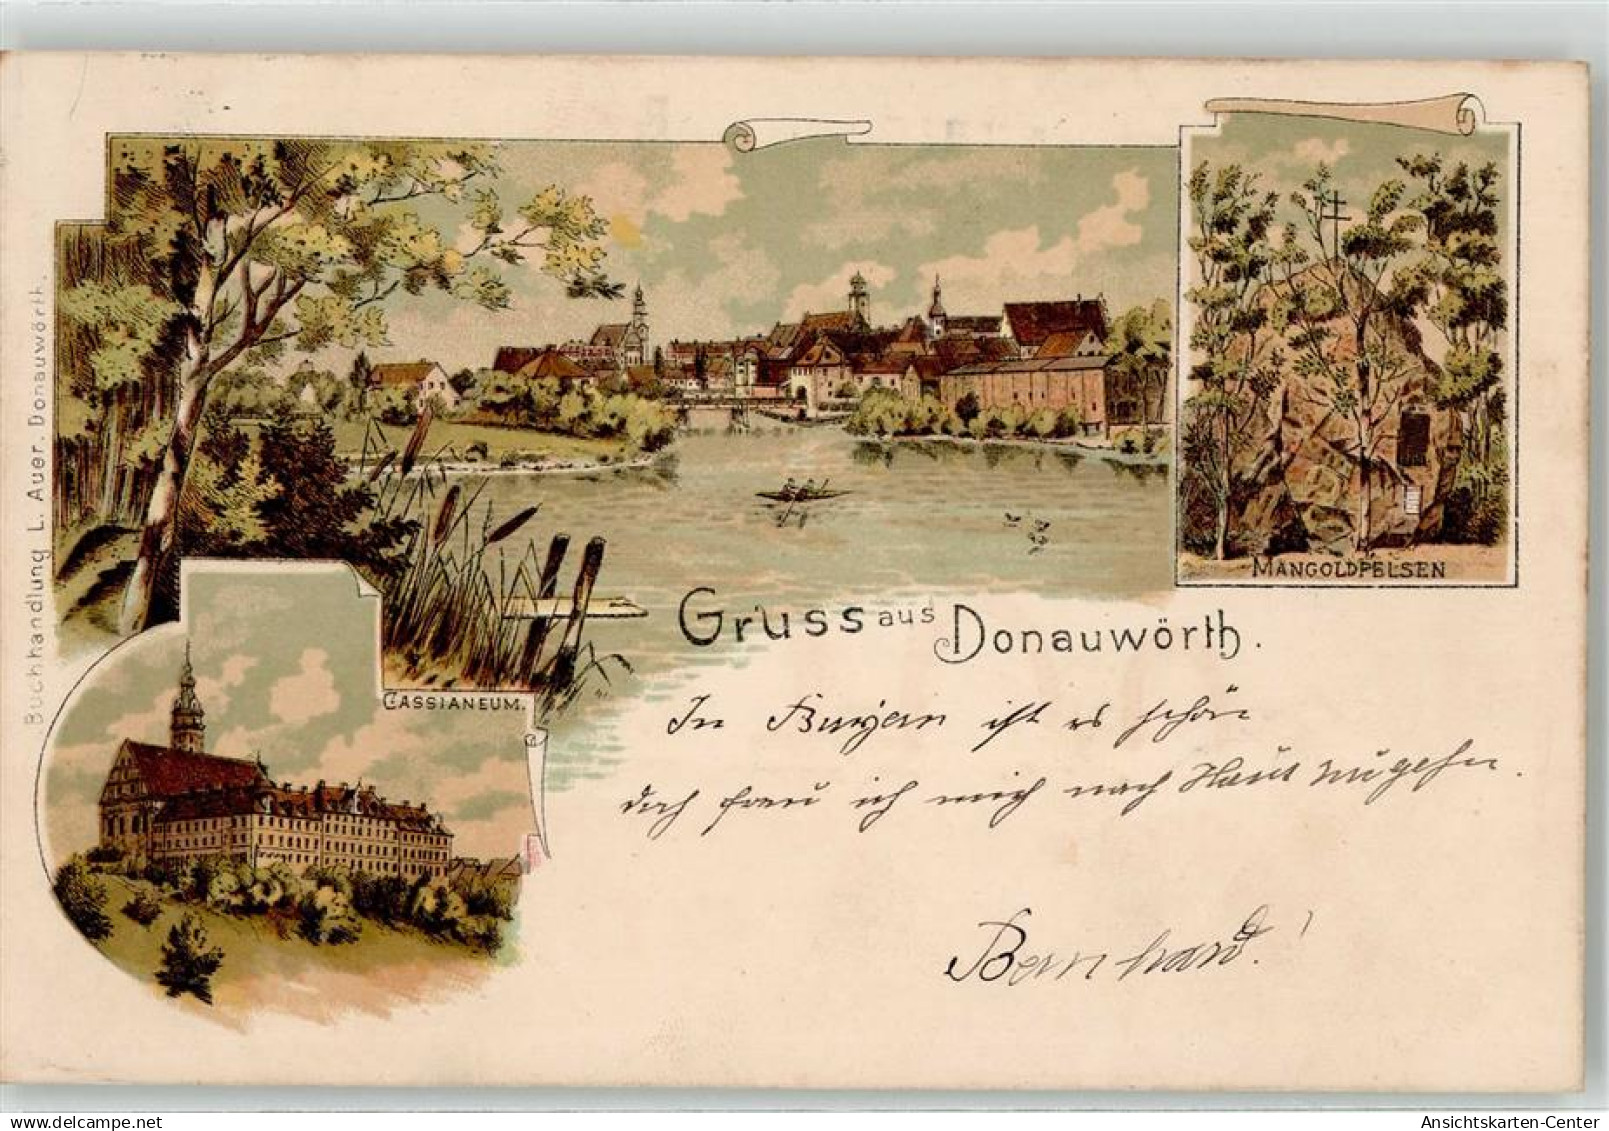 Buchhandlung L. Auer. Donauwörth.
MANGOLDFELSEN
Gruss aus Donauwörth.
CASSIANEUM.
In Bayern ist es schön
doch freu ich mich nach Haus zu gehn.
Bernhard!
Ansichtskarten-Center